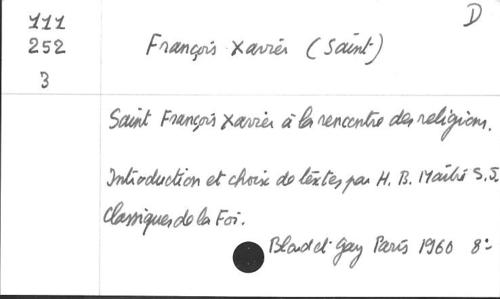 D
111
252
3
François Xavier (Saint)
Saint François Xavier à la rencontre des religions.
Introduction et choix de textes par H. B. Maître S.J.
Classiques de la Foi.
Bloud et Gay Paris 1960 8º